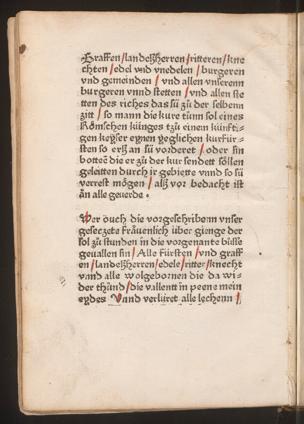 Graffen/landeßherren/ritteren/kne
chten/edel vnd vnedelen/burgeren
vnd gemeinden/vnd allen vnserenn
burgeren vnnd stetten/vnd allen ste
tten des riches das sü zů der selbenn
zitt/so mann die kure tůnn sol eines
Römschen künges tzů einem künffti-
gen keyser eynen yeglichen kurfür-
sten so erst an sü vorderet/oder sin
botten die er zů der kur sendett söllen
geleitten durch ir gebiette vnnd so sü
verrest mögen/alß vor bedacht ist
än alle geuerde.
Wer ouch die vorgeschribenn vnser
gesetzete fräuenlich über gienge der
sol zů stunden in die vorgenante bůsse
geuallen sin/Alle Fürsten/vnd graff
en/landeßherren/edele/ritter/knecht
vnnd alle wolgebornen die da wi-
der thůnd/die vallent in peene mein
eydes Vnnd verlüret alle lechenn/